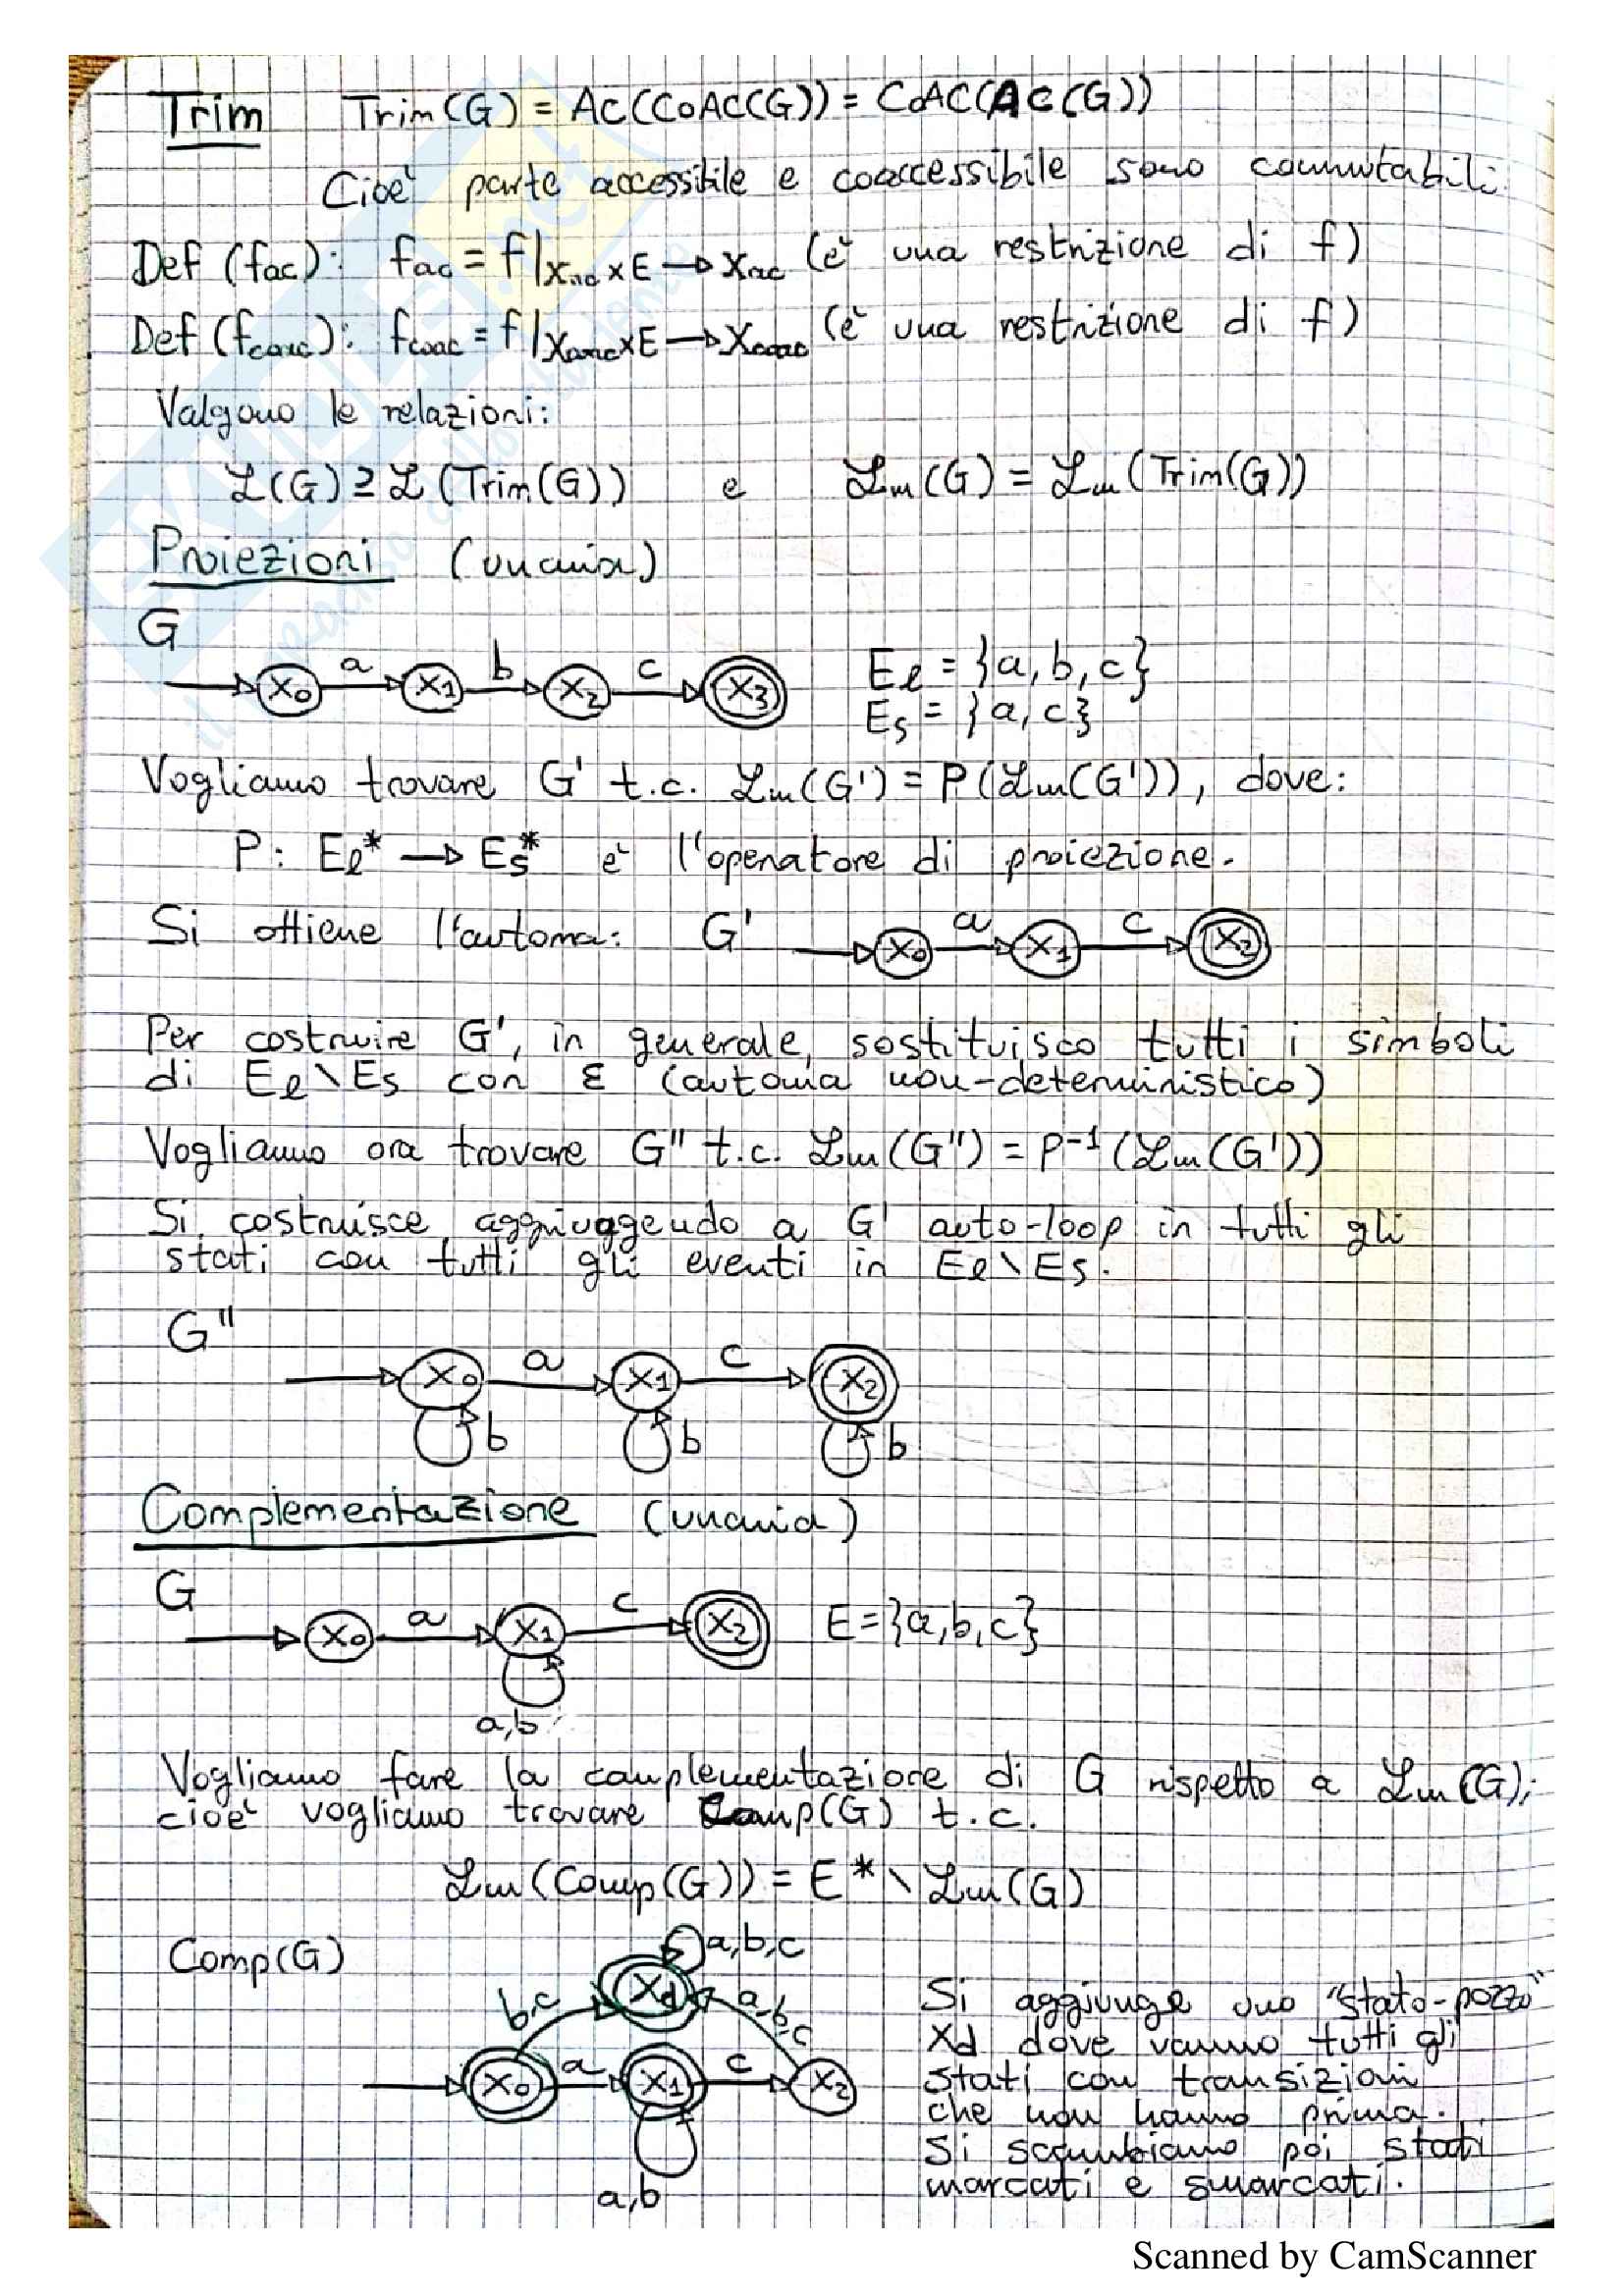 Trim Trim(G) = Ac(CoAc(G)) = CoAC(Ac(G))
Cioè parte accessibile e coaccessibile sono commutabili.
Def (fac): fac = f|Xac×E→Xac (è una restrizione di f)
Def (fcoac): fcoac = f|Xcoac×E→Xcoac (è una restrizione di f)
Valgono le relazioni:
ℒ(G) ⊇ ℒ(Trim(G)) e ℒm(G) = ℒm(Trim(G))
Proiezioni (unaria)
G
X0 a X1 b X2 c X3 El = {a, b, c}
Es = {a, c}
Vogliamo trovare G' t.c. ℒm(G') = P(ℒm(G')), dove:
P: El* → Es* è l'operatore di proiezione.
Si ottiene l'automa: G' X0 a X1 c X2
Per costruire G', in generale, sostituisco tutti i simboli
di El\Es con ε (automa non-deterministico)
Vogliamo ora trovare G'' t.c. ℒm(G'') = P-1(ℒm(G'))
Si costruisce aggiuggendo a G' auto-loop in tutti gli
stati con tutti gli eventi in El\Es.
G''
X0 a X1 c X2
b b b
Complementazione (unaria)
G
X0 a X1 c X2 E={a,b,c}
a,b
Vogliamo fare la complementazione di G rispetto a ℒm(G),
cioè vogliamo trovare Comp(G) t.c.
ℒm(Comp(G)) = E* \ ℒm(G)
Comp(G)
a,b,c
Xd
b,c a,b,c
X0 a X1 c X2
a,b
Si aggiunge uno "stato-pozzo"
Xd dove vanno tutti gli
stati con transizioni
che non hanno prima.
Si scambiano poi stati
marcati e smarcati.
Scanned by CamScanner